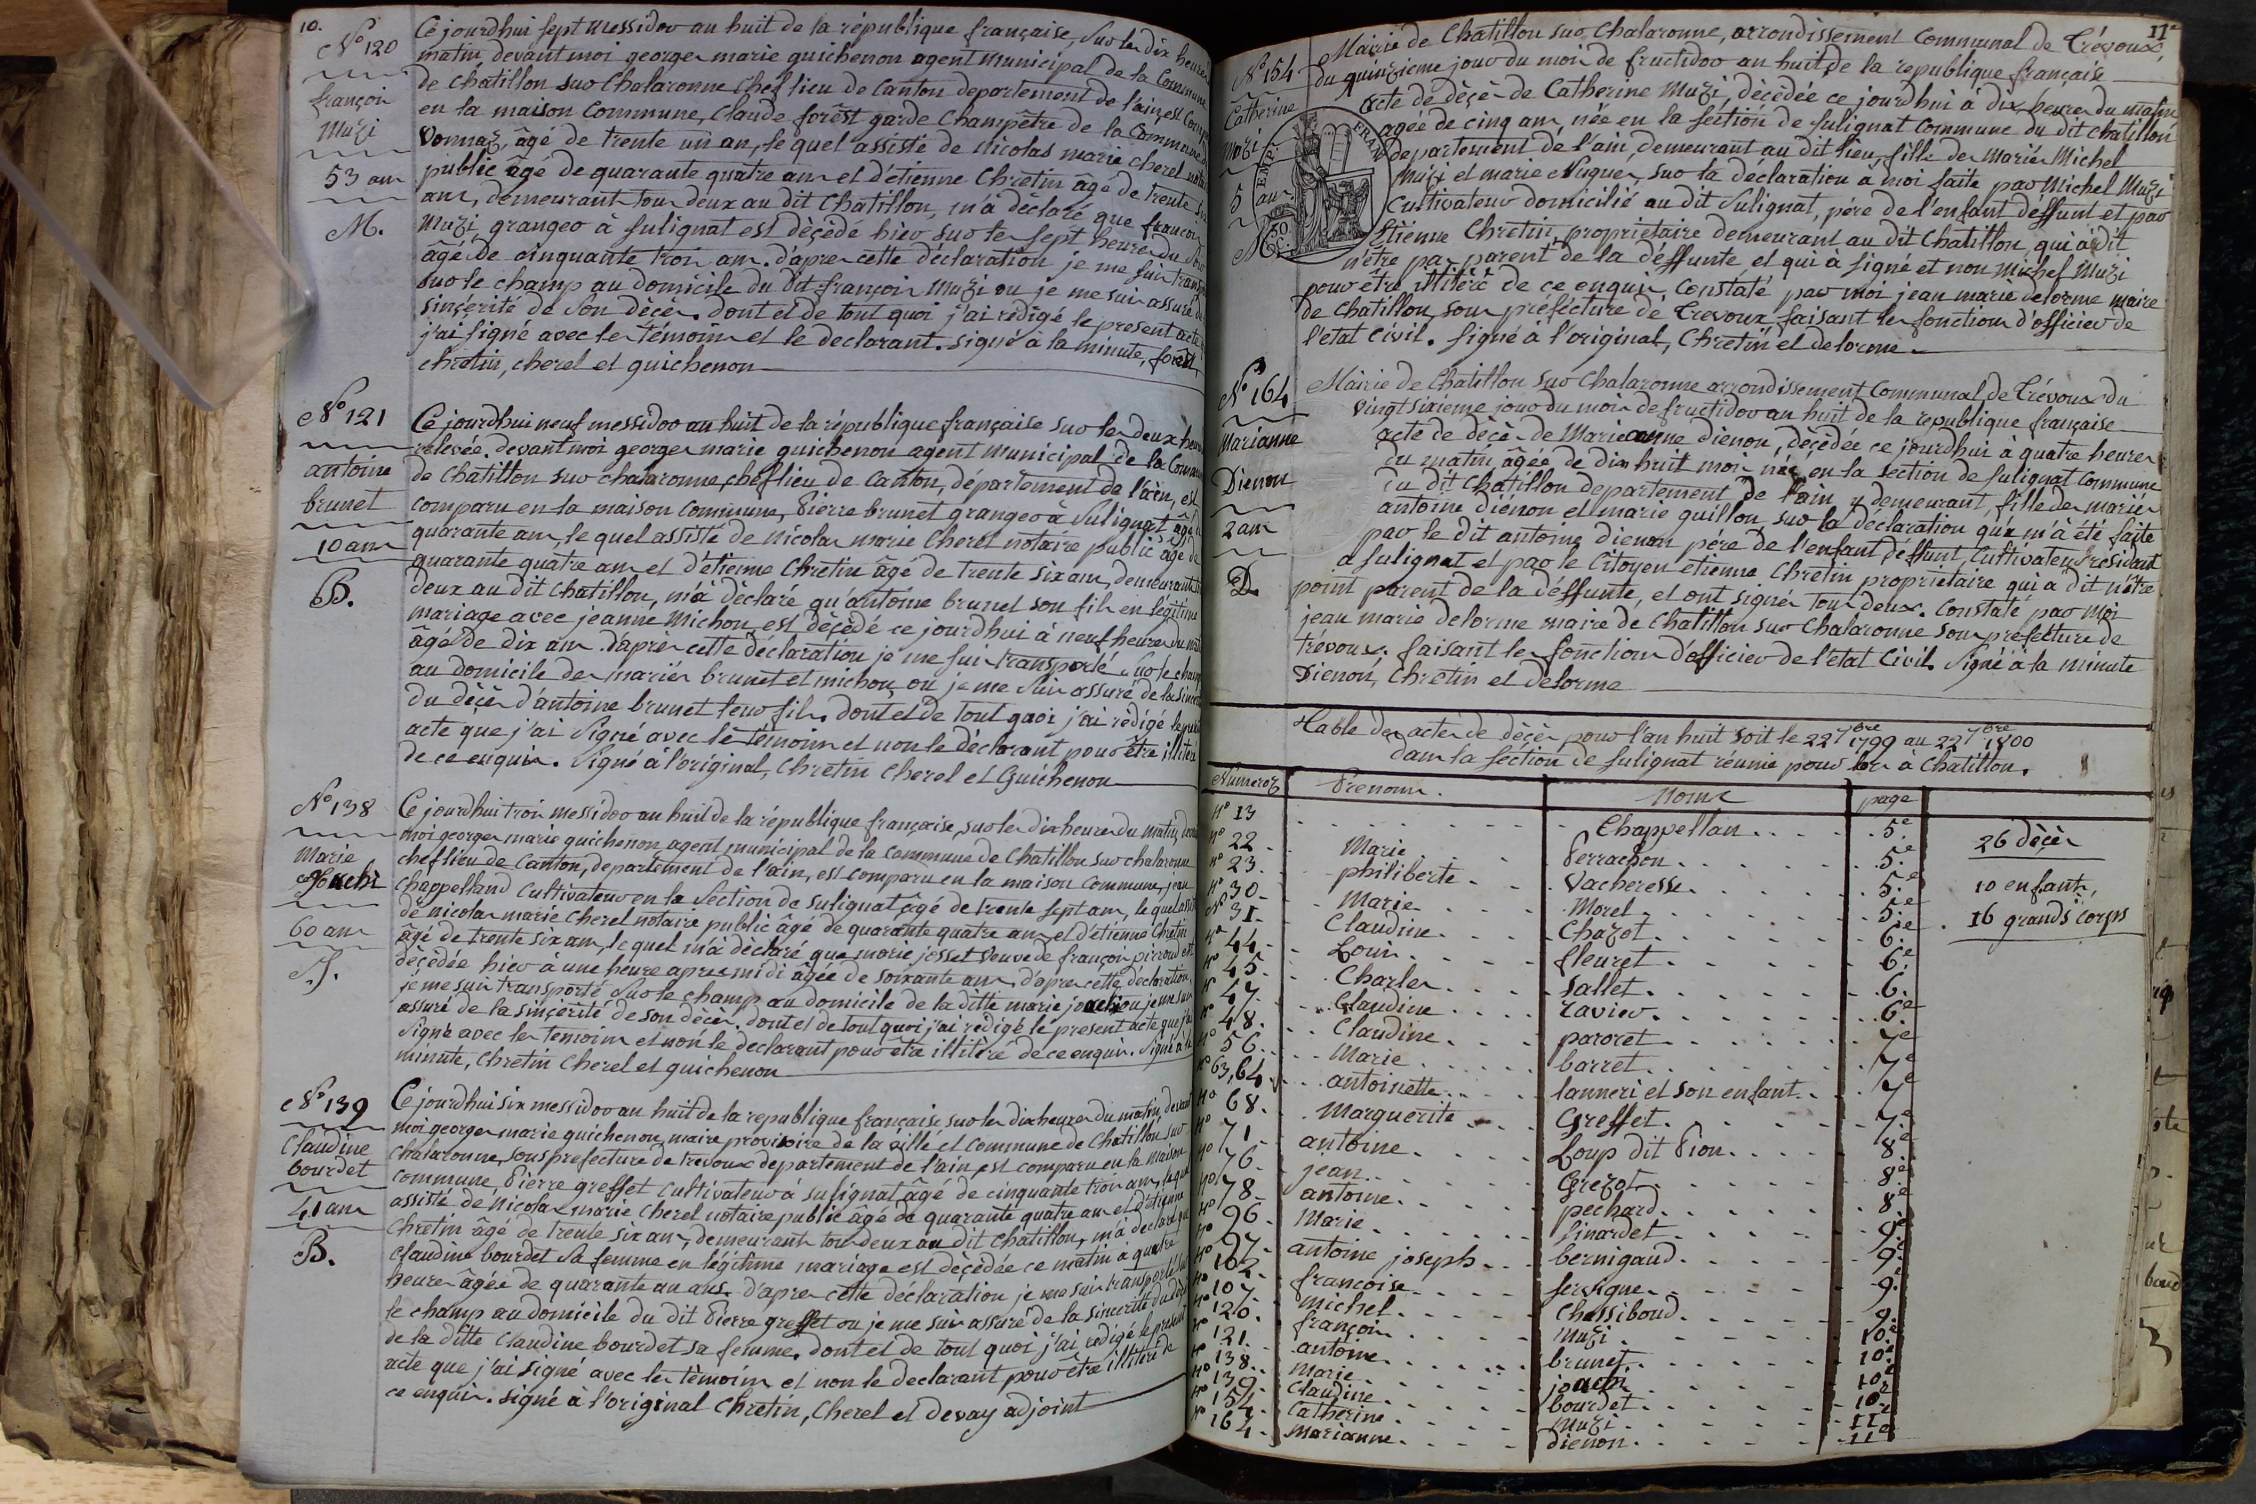 10.
N° 120
françois
Muzi
53 ans
M.
Ce jourdhui sept messidor an huit de la république française, sur les dix heures
matin devant moi georges marie guichenon agent municipal de la Commune
de chatillon sur Chalaronne chef lieu de Canton departement de l'ain, est
en la maison Commune, Claude forêst garde Champêtre de la Commune
Vonnaz, âgé de trente un ans, le quel assisté de nicolas marie cherel
public âgé de quarante quatre ans et d'étienne Chretin âgé de trente six
ans, demeurants tous deux au dit Chatillon, m'a déclaré que françois
Muzi, granger à sulignat est dècède hier sur les sept heures du
âgé de cinquante trois ans. d'après cette déclaration je me suis
sur le champ au domicile du dit françois Muzi ou je me suis assuré
sincérité de son dècès. dont et de tout quoi j'ai rédigé le present acte
j'ai signé avec les témoins et le declarant. signé à la minute, forêst,
chretin, cherel et guichenon
N° 121
antoine
brunet
10 ans
B.
Ce jourdhui neuf messidor an huit de la république française sur les deux heures
relevée. devant moi georges marie guichenon agent municipal de la Commune
de Chatillon sur chalaronne, chef lieu de Canton, département de l'ain, est
comparu en la maison commune, Pierre brunet granger à Sulignat âgé
quarante ans, le quel assisté de nicolas marie Cherel notaire public âgé de
quarante quatre ans et d'étienne Chretin âgé de trente six ans, demeurants
deux au dit chatillon, m'à déclaré qu'antoine brunet son fils en légitime
mariage avec jeanne Michon, est dècèdé ce jourd'hui à neuf heures du
âgé de dix ans. d'après cette déclaration je me suis transporté sur le champ
au domicile des mariés brunet et michon, ou je me suis assuré de la
du dècès d'antoine brunet leur fils. dont et de tout quoi j'ai rédigé le
acte que j'ai signé avec les témoins et non le déclarant pour être illiteré
de ce enquis. Signé à l'original, Chretin Cherel et Guichenon
N° 138
Marie
60 ans
J.
Ce jourdhui trois messidor an huit de la république française, sur les dix heures du matin,
moi georges marie guichenon agent municipal de la commune de Chatillon sur chalaronne
chef lieu de Canton, departement de l'ain, est comparu en la maison commune, jean
Chappelland cultivateur en la section de sulignat âgé de trente sept ans, le quel
de nicolas marie cherel notaire public âgé de quarante quatre ans et d'étienne Chretin
âgé de trente six ans, le quel m'à dèclaré que marie josset veuve de françois pirroud est
dècèdée hier à une heure après midi âgée de soixante ans, d'après cette déclaration
je me suis transporté sur le champ au domicile de la ditte marie ou je me suis
assuré de la sincérité de son dècès. dont et de tout quoi j'ai rédigé le present acte que j'ai
signé avec les temoins et non le declarant pour être illitère de ce enquis. Signé à la
minute, Chretin Cherel et guichenon
N° 139
Claudine
bourdet
41 ans
B.
Ce jourdhui six messidor an huit de la republique française sur les dix heures du matin, devant
moi georges marie guichenon, maire provisoire de la ville et commune de Chatillon sur
chalaronne, sous prefecture de trevoux departement de l'ain est comparu en la maison
commune, Pierre greffet cultivateur à sulignat âgé de cinquante trois ans, le quel
assisté de nicolas marie Cherel notaire public âgé de quarante quatre ans et d'étienne
Chretin âgé de trente six ans, demeurants tous deux au dit chatillon, m'à declaré que
Claudine bourdet sa femme en légitime mariage est dècèdée ce matin à quatre
heures âgée de quarante un ans. d'après cette déclaration je me suis transporté
le champ au domicile du dit Pierre greffet ou je me suis assuré de la sincerité du
de la ditte Claudine bourdet sa femme. dont et de tout quoi j'ai rédigé le present
acte que j'ai signé avec les témoins et non le declarant pour être illitère de
ce enquis. signé à l'original Chretin, Cherel et Devay adjoint
11e
N° 154
Catherine
Muzi
5 ans
M.
EMP. FRAN
50
C.
Mairie de Chatillon sur Chalaronne, arrondissement Communal de Trévoux,
du quinzieme jour du mois de fructidor an huit de la republique française
acte de dècès de Catherine Muzi, dècèdée ce jourdhui à dix heures du matin
agée de cinq ans, née en la section de sulignat commune du dit chatillon
departement de l'ain, demeurant au dit lieu, fille des mariés Michel
Muzi et marie Nugues, sur la déclaration à moi faite par Michel Muzi
Cultivateur domicilié au dit Sulignat, père de l'enfant déffunt et par
Etienne Chretin, propriétaire demeurant au dit Chatillon, qui à dit
n'être pas parent de la déffunte et qui à signé et non Michel Muzi
pour être illitéré de ce enquis. Constaté par moi jean marie delorme maire
de Chatillon, sous préfécture de Trevoux faisant les fonctions d'officier de
l'etat civil. signé à l'original, Chretin et delorme
N° 164
Marianne
Dienon
2 ans
D.
Mairie de Chatillon sur Chalaronne arrondissement Communal de Trévoux du
vingt sixieme jour du mois de fructidor an huit de la republique française
acte de dècès de Marieanne dienon, dècèdée ce jourdhui à quatre heures
du matin, âgée de dix huit mois née en la section de sulignat commune
du dit Chatillon departement de l'ain y demeurant, fille des mariés
antoine diénon et marie guillon, sur la déclaration qui m'à été faite
par le dit antoine dienon père de l'enfant déffunt, Cultivateur résidant
a sulignat et par le Citoyen etienne Chretin propriétaire qui a dit n'être
point parent de la déffunte, et ont signés tous deux. Constaté par moi
jean marie delorme maire de Chatillon sur Chalaronne sous prefecture de
trévoux. faisant les fonctions d'officier de l'etat Civil. Signé à la minute
Dienon, Chretin et Delorme
Table des actes de dècès pour l'an huit soit le 22 7bre 1799 au 22 7bre 1800
dans la séction de sulignat réunie pour lors à Chatillon.
Numeros Prenoms. Noms page
N° 13 Chappellan 5e
N° 22 Marie Perrachon 5e
N° 23 philiberte Vacheresse 5e
N° 30 Marie Morel 5e
N° 31 Claudine Chazot 6e
N° 44 Louis fleuret 6e
N° 45 Charles Sallet 6.
N° 47 Claudine ravier 6e
N° 48 Claudine paroret 7e
N° 56 Marie barret 7e
N° 63,64 antoinette lanneri et son enfant 7e
N° 68 Marguerite Greffet 7e
N° 71 antoine Loup dit Pion 8e
N° 76 jean Grezot 8e
N° 78 antoine pechard 8e
N° 96 Marie linardet 9e
N° 97 antoine joseph bernigaud 9e
N° 102 francoise fersigne 9e
N° 107 michel Chassiboud 9.
N° 120 françois Muzi 10e
N° 121 antoine brunet 10e
N° 138 Marie 10e
N° 139 Claudine bourdet 10e
N° 154 Catherine muzi 11e
N° 164 marianne dienon 11e
26 dècès
10 enfants,
16 grands corps